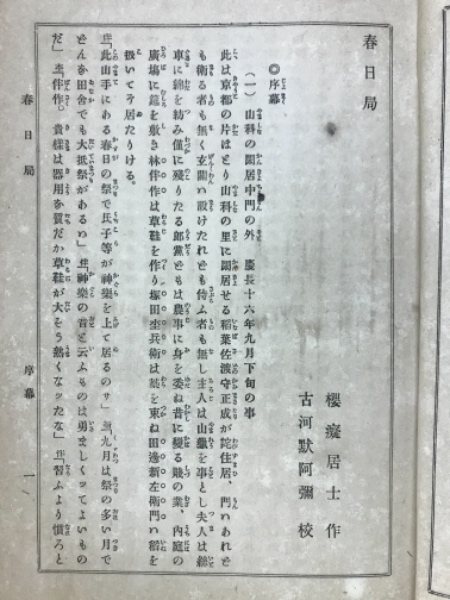 春日局
櫻癡居士作
古河默阿彌校
◎序幕
(一) 山科の閑居中門の外 慶長十六年九月下旬の事
此は京都の片ほとり山科の里に閑居せる稻葉佐渡守正成が詫住居、門ハあれと
も衛る者も無く玄關ハ設けたれとも侍ふ者も無し主人は山獵を事とし夫人は綿
車に綿を紡み僅に殘りたる郎黨ともは農事に身を委ね昔に變る賤の業、内庭の
廣塲に筵を敷き林伴作は草鞋を作り塚田杢兵衛は藁を束ね田邊新左衛門ハ稻を
扱いて予居たりける。
「此山手にある春日の祭で氏子等が神樂を上て居るのサ」「九月は祭の多い月で
どんな田舍でも大抵祭があるわい」「神樂の音と云ふものは勇ましくッてよいもの
だ」「伴作。貴様は器用な質だか草鞋が大そう熱くなッたな」「習ふより慣ろと
春日局
序幕
一